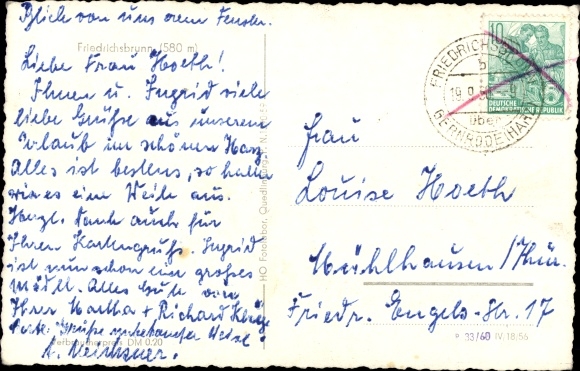 Blick von uns dem Fenster.
Friedrichsbrunn (580 m)
Liebe Frau Hoeth!
Ihnen u. Ingrid viele
liebe Grüße aus unserem
Urlaub im schönen Harz
Alles ist bestens, so halten
wir es eine Weile aus.
Herzl. Dank auch für
Ihren Kartengruß. Ingrid
ist nun schon ein großes
Mädel. Alles Gute von
Ihrer Martha + Richard
Verbraucherpreis DM 0.20
HO Fotolabor, Quedlinburg
FRIEDRICHSBRUNN
b
19.9.
über
GERNRODE (HARZ)
10
DEUTSCHE
DEMOKRATISCHE REPUBLIK
Frau
Louise Hoeth
Mühlhausen / Thür.
Friedr. Engels-Str. 17
33/60 IV/18/56